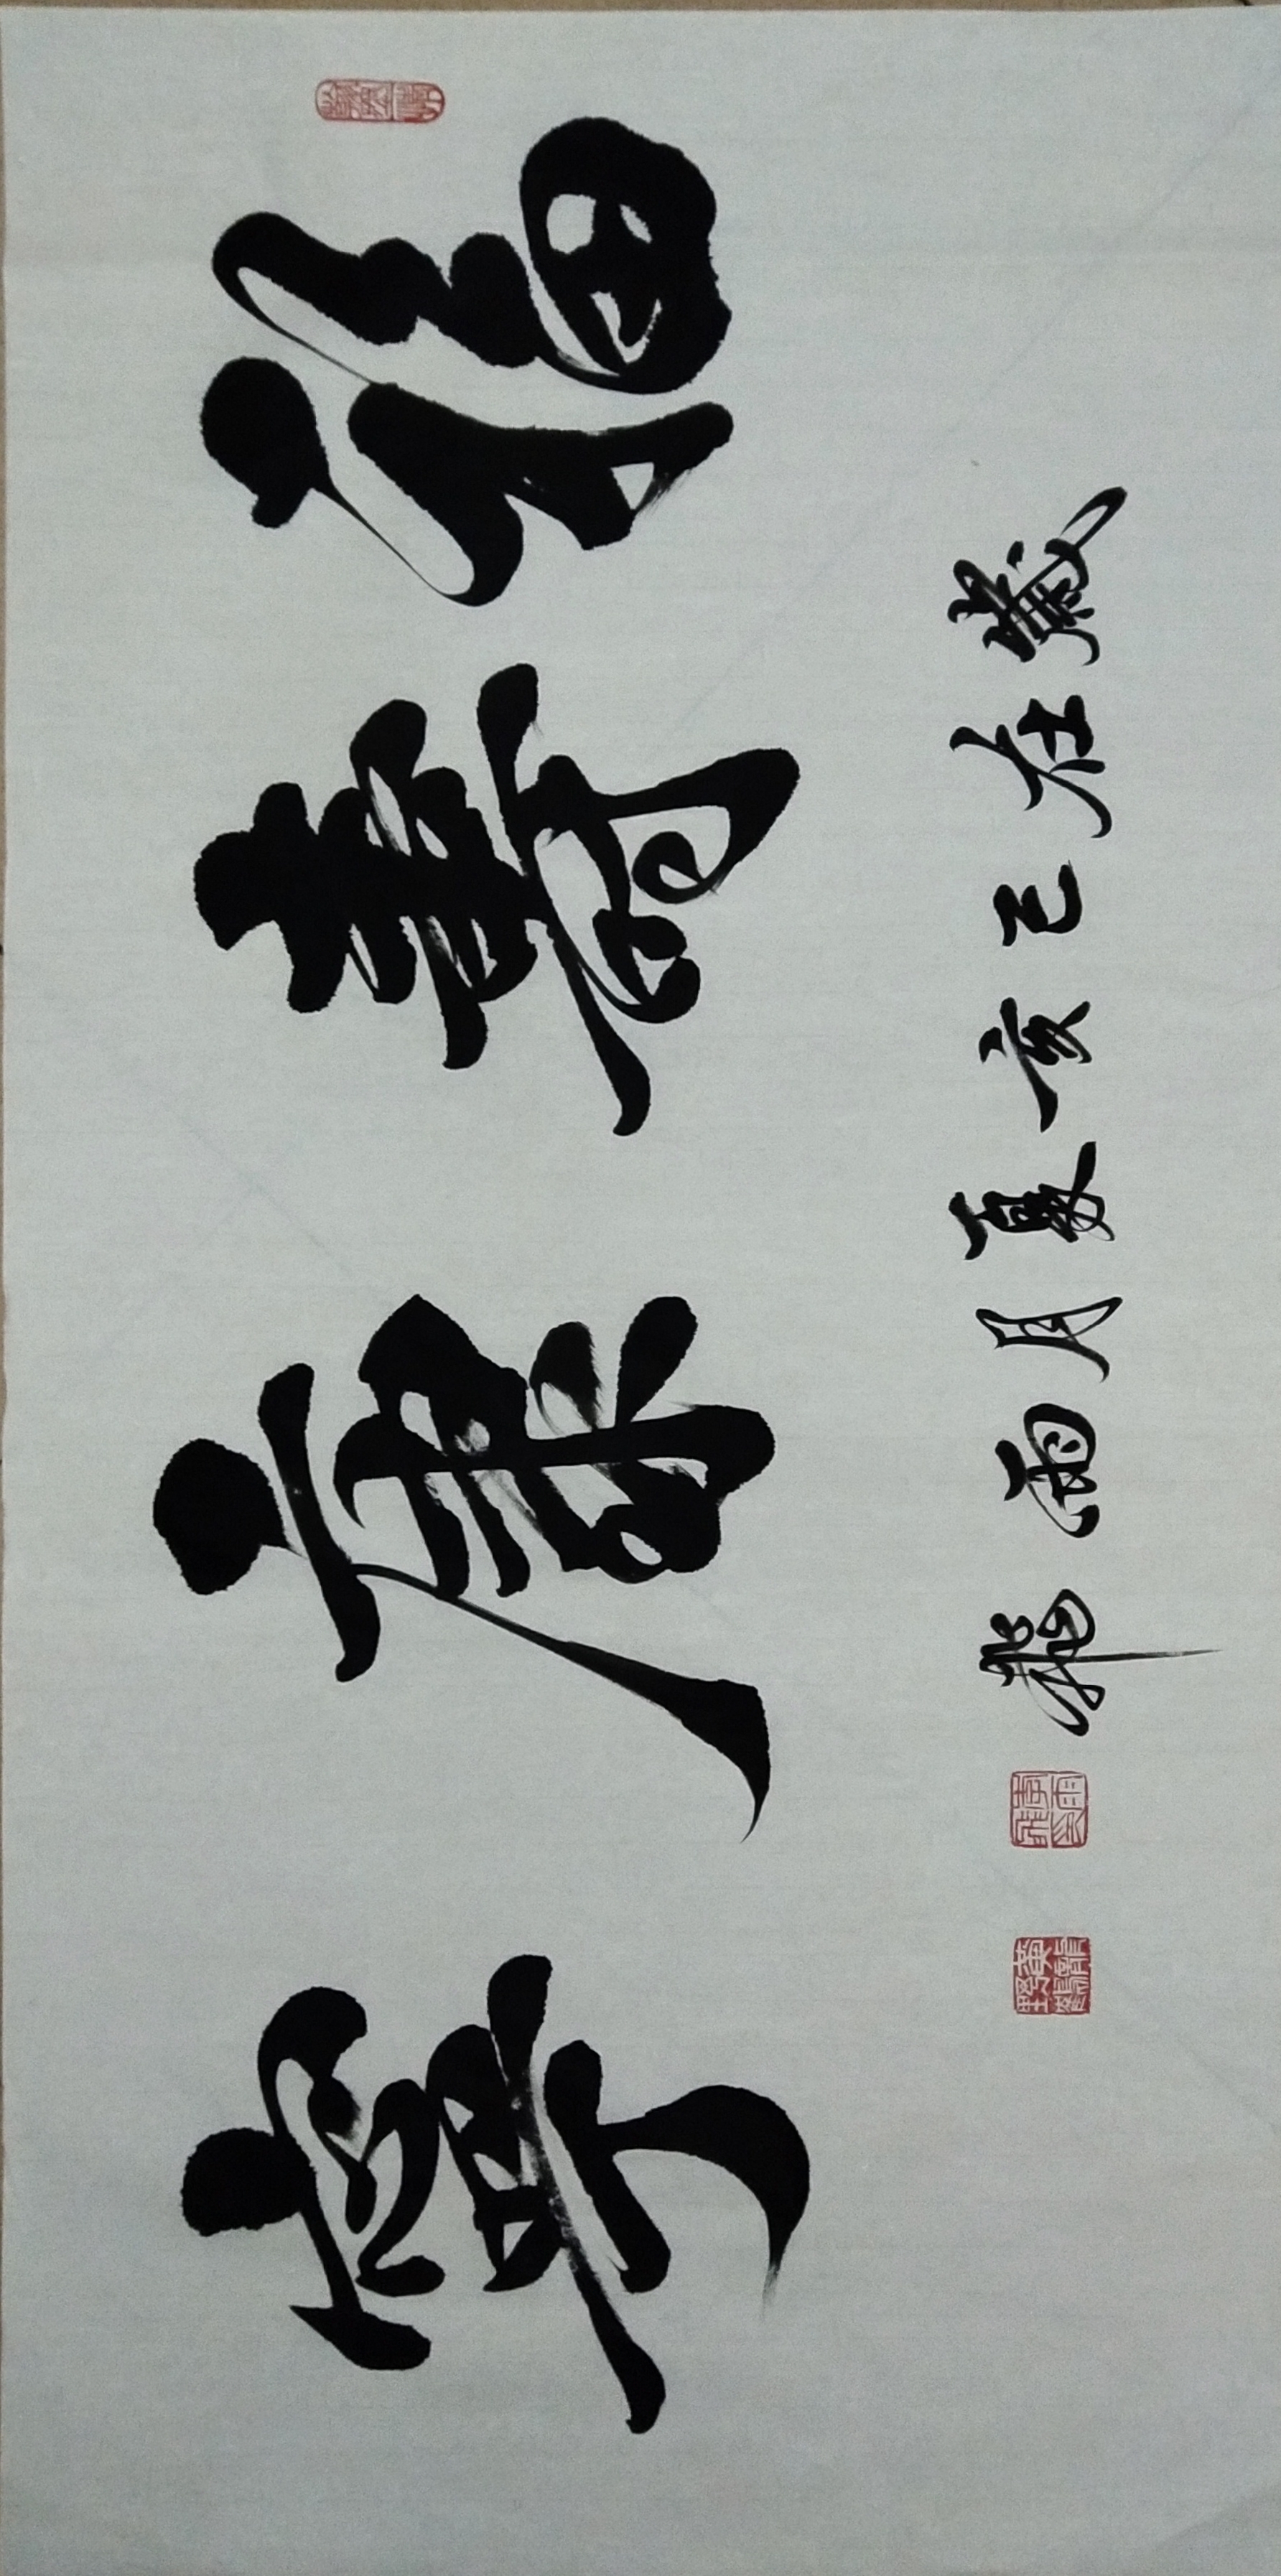 福壽康寧
歲在己亥夏月